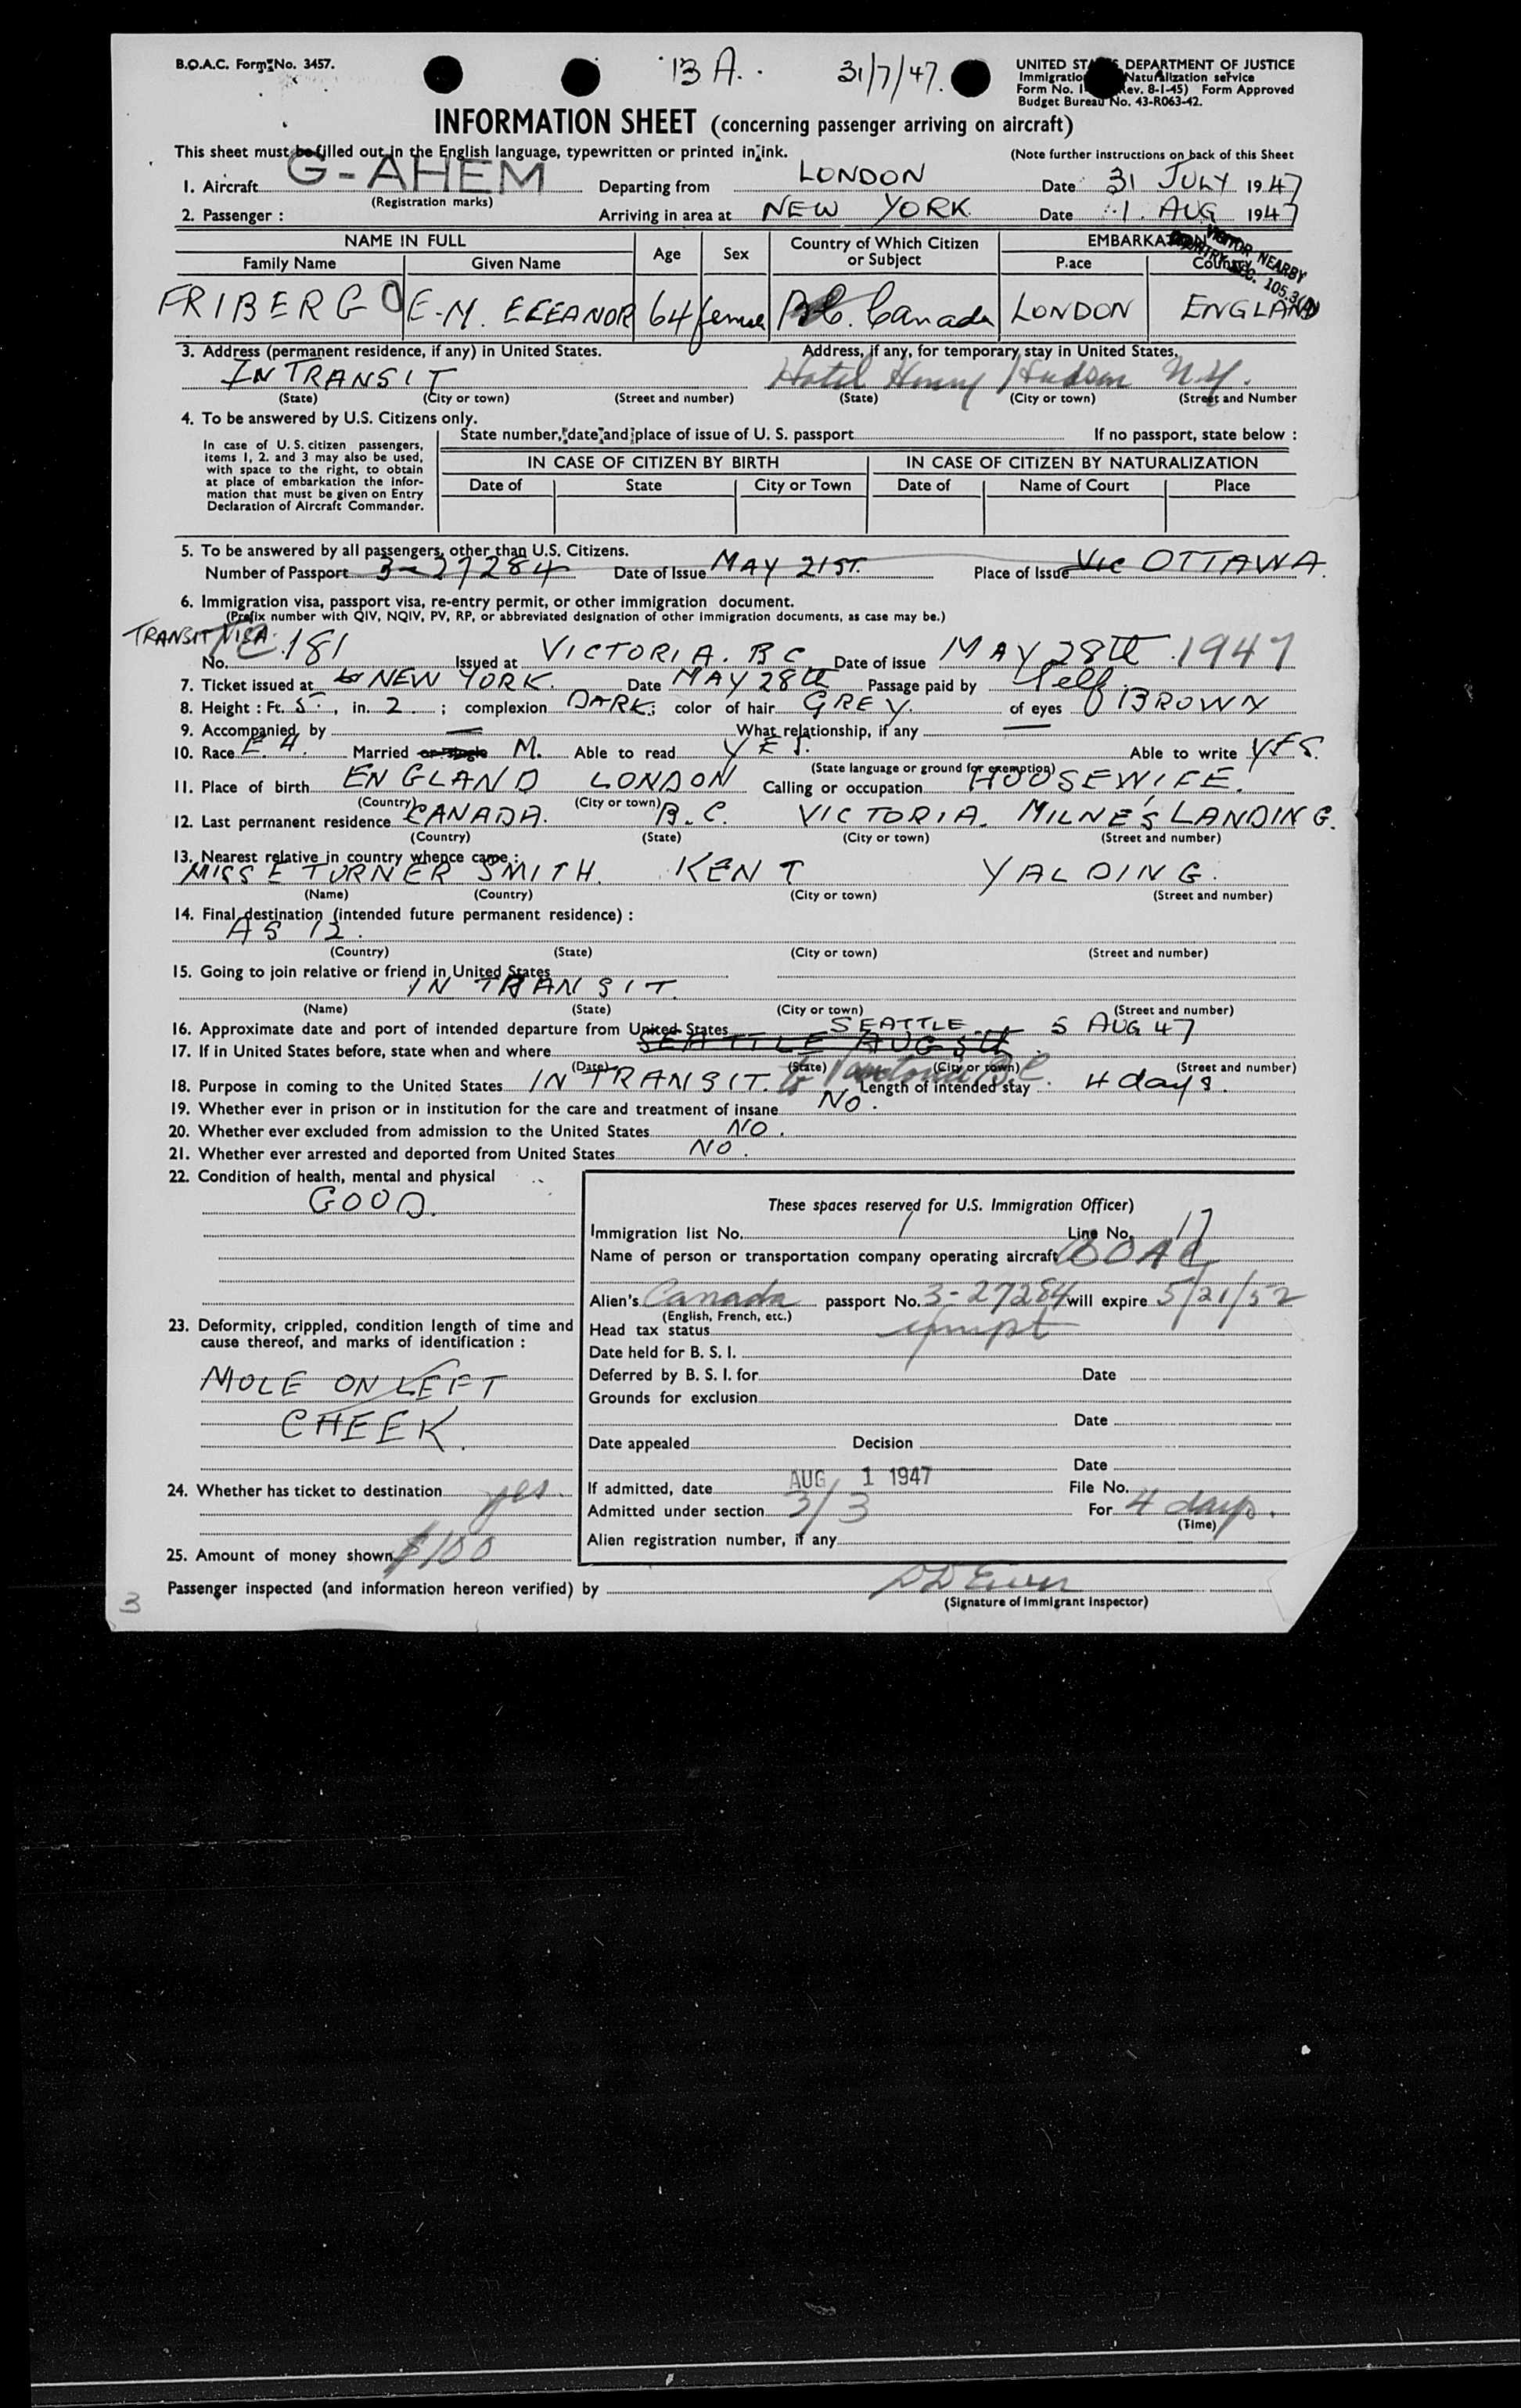 B.O.A.C. Form No. 3457.
13 A.
31/7/47.
UNITED STATES DEPARTMENT OF JUSTICE
Immigration Naturalization service
Form No. I- Rev. 8-1-45) Form Approved
Budget Bureau No. 43-R063-42.
INFORMATION SHEET (concerning passenger arriving on aircraft)
This sheet must be filled out in the English language, typewritten or printed in ink.
(Note further instructions on back of this Sheet
1. Aircraft G-AHEM Departing from LONDON Date 31 JULY 1947
(Registration marks)
2. Passenger : Arriving in area at NEW YORK Date 1. AUG 1947
NAME IN FULL Age Sex Country of Which Citizen or Subject EMBARKATION
Family Name Given Name Place Country
VISITOR NEARBY
COUNTRY SEC. 105.3(A)
FRIBERG E-M. ELEANOR 64 female B.C. Canada LONDON ENGLAND
3. Address (permanent residence, if any) in United States. Address, if any, for temporary stay in United States.
IN TRANSIT Hotel Henry Hudson N.Y.
(State) (City or town) (Street and number) (State) (City or town) (Street and Number
4. To be answered by U.S. Citizens only.
In case of U.S. citizen passengers, items 1, 2. and 3 may also be used, with space to the right, to obtain at place of embarkation the information that must be given on Entry Declaration of Aircraft Commander.
State number, date and place of issue of U. S. passport If no passport, state below :
IN CASE OF CITIZEN BY BIRTH IN CASE OF CITIZEN BY NATURALIZATION
Date of State City or Town Date of Name of Court Place
5. To be answered by all passengers, other than U.S. Citizens.
Number of Passport 3-27284 Date of Issue MAY 21ST. Place of Issue VIC OTTAWA.
6. Immigration visa, passport visa, re-entry permit, or other immigration document.
(Prefix number with QIV, NQIV, PV, RP, or abbreviated designation of other immigration documents, as case may be.)
TRANSIT VISA.
No. 181 Issued at VICTORIA. B C Date of issue MAY 28th 1947
7. Ticket issued at to NEW YORK. Date MAY 28th Passage paid by Self
8. Height : Ft. 5., in. 2. ; complexion DARK; color of hair GREY. of eyes BROWN
9. Accompanied by — What relationship, if any —
10. Race E. 4. Married or single M. Able to read YES. Able to write YES.
(State language or ground for exemption)
11. Place of birth ENGLAND LONDON Calling or occupation HOUSEWIFE.
(Country) (City or town)
12. Last permanent residence CANADA. B.C. VICTORIA. MILNE'S LANDING.
(Country) (State) (City or town) (Street and number)
13. Nearest relative in country whence came :
MISS E TURNER SMITH. KENT YALDING.
(Name) (Country) (City or town) (Street and number)
14. Final destination (intended future permanent residence) :
AS 12.
(Country) (State) (City or town) (Street and number)
15. Going to join relative or friend in United States
IN TRANSIT.
(Name) (State) (City or town) (Street and number)
16. Approximate date and port of intended departure from United States SEATTLE 5 AUG 47
17. If in United States before, state when and where SEATTLE AUG 5th
(Date) (State) (City or town) (Street and number)
18. Purpose in coming to the United States IN TRANSIT. to Victoria B.C. Length of intended stay 4 days.
19. Whether ever in prison or in institution for the care and treatment of insane NO.
20. Whether ever excluded from admission to the United States NO.
21. Whether ever arrested and deported from United States NO.
22. Condition of health, mental and physical
GOOD.
These spaces reserved for U.S. Immigration Officer)
Immigration list No. 1 Line No. 17
Name of person or transportation company operating aircraft BOAC
Alien's Canada passport No. 3-27284 will expire 5/21/52
(English, French, etc.)
Head tax status exempt
23. Deformity, crippled, condition length of time and cause thereof, and marks of identification :
MOLE ON LEFT
CHEEK.
Date held for B. S. I.
Deferred by B. S. I. for Date
Grounds for exclusion
Date
Date appealed Decision
Date
24. Whether has ticket to destination yes.
If admitted, date AUG 1 1947 File No.
Admitted under section 3/3 For 4 days.
(Time)
Alien registration number, if any
25. Amount of money shown $100
Passenger inspected (and information hereon verified) by
(Signature of Immigrant Inspector)
3